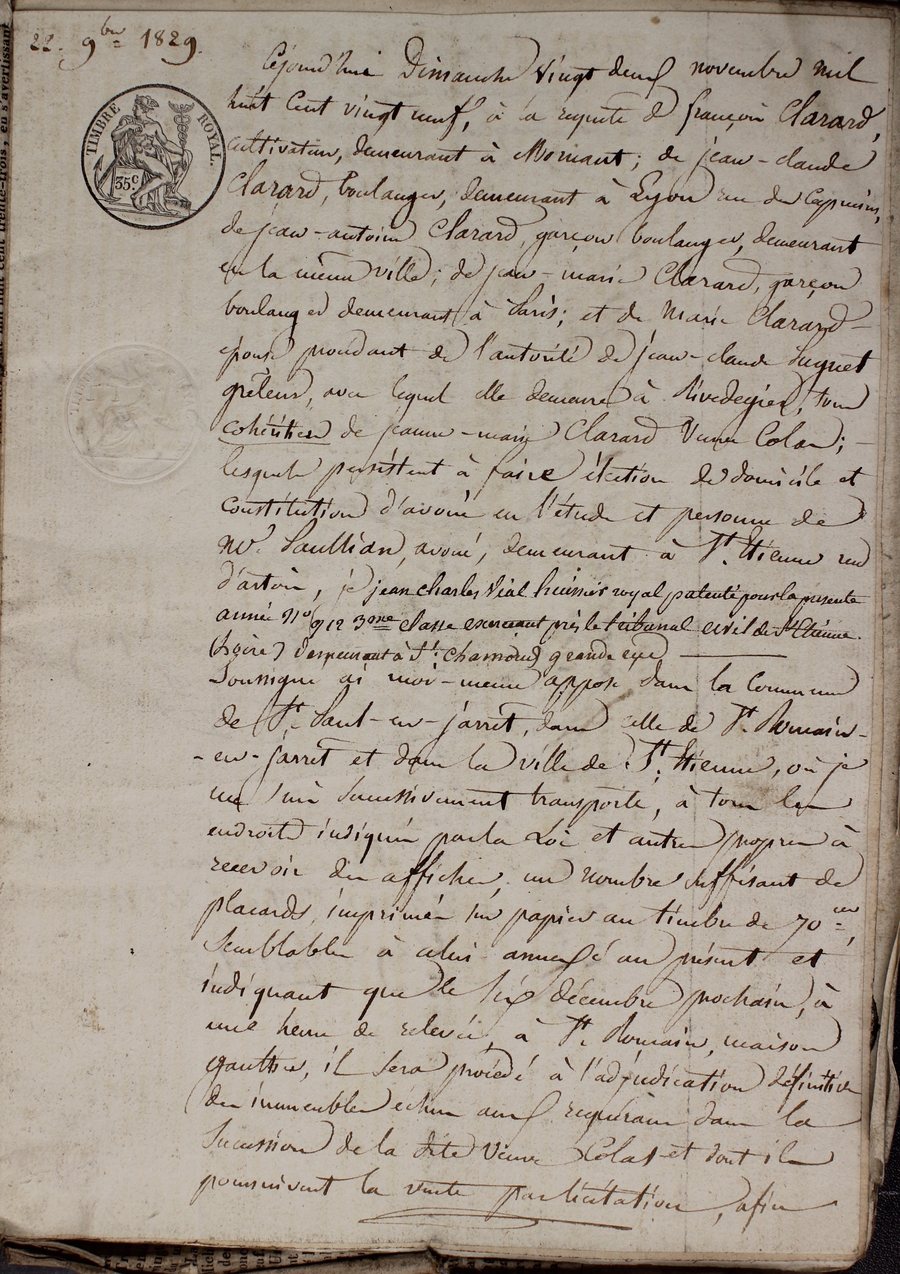 22. 9bre 1829.
TIMBRE ROYAL.
35c
Cejourd'hui Dimanche vingt deux novembre mil
huit cent vingt neuf, à la requête de françois Clarard,
cultivateur, demeurant à Mornant; de jean-claude
Clarard, boulanger, demeurant à Lyon rue des Capucins,
de jean-antoine Clarard, garçon boulanger, demeurant
en la même ville; de jean-marie Clarard, garçon
boulanger demeurant à Paris; et de Marie Clarard
épouse procédant de l'autorité de jean-claude Luquet
grêleur, avec lequel elle demeure à Rivedegier, tous
cohéritiers de jeanne-marie Clarard Veuve Colas;
lesquels persistent à faire élection de domicile et
constitution d'avoué en l'étude et personne de
Me. Paullian, avoué, demeurant à St. Etienne rue
d'artois, je jean charles Vial huissier royal patenté pour la presente
année No 912 3eme classe exercant près le tribunal civil de St Etienne
(Loire) demeurant à St. chamond grande rue
Soussigné ai moi-même apposé dans la Commune
de St. Paul-en-jarret, dans celle de St. Romain-
-en-jarret et dans la ville de St. Etienne, où je
me suis successivement transporté, à tous les
endroits indiqués par la Loi et autres propres à
recevoir des affiches, un nombre suffisant de
placards, imprimés sur papier au timbre de 70 ces,
semblables à celui annexé au présent et
indiquant que le six décembre prochain, à
une heure de relevée, à St. Romain, maison
gauthier, il sera procédé à l'adjudication définitive
des immeubles échus aux requérans dans la
succession de la dite Veuve Colas et dont ils
poursuivent la vente par licitation, afin